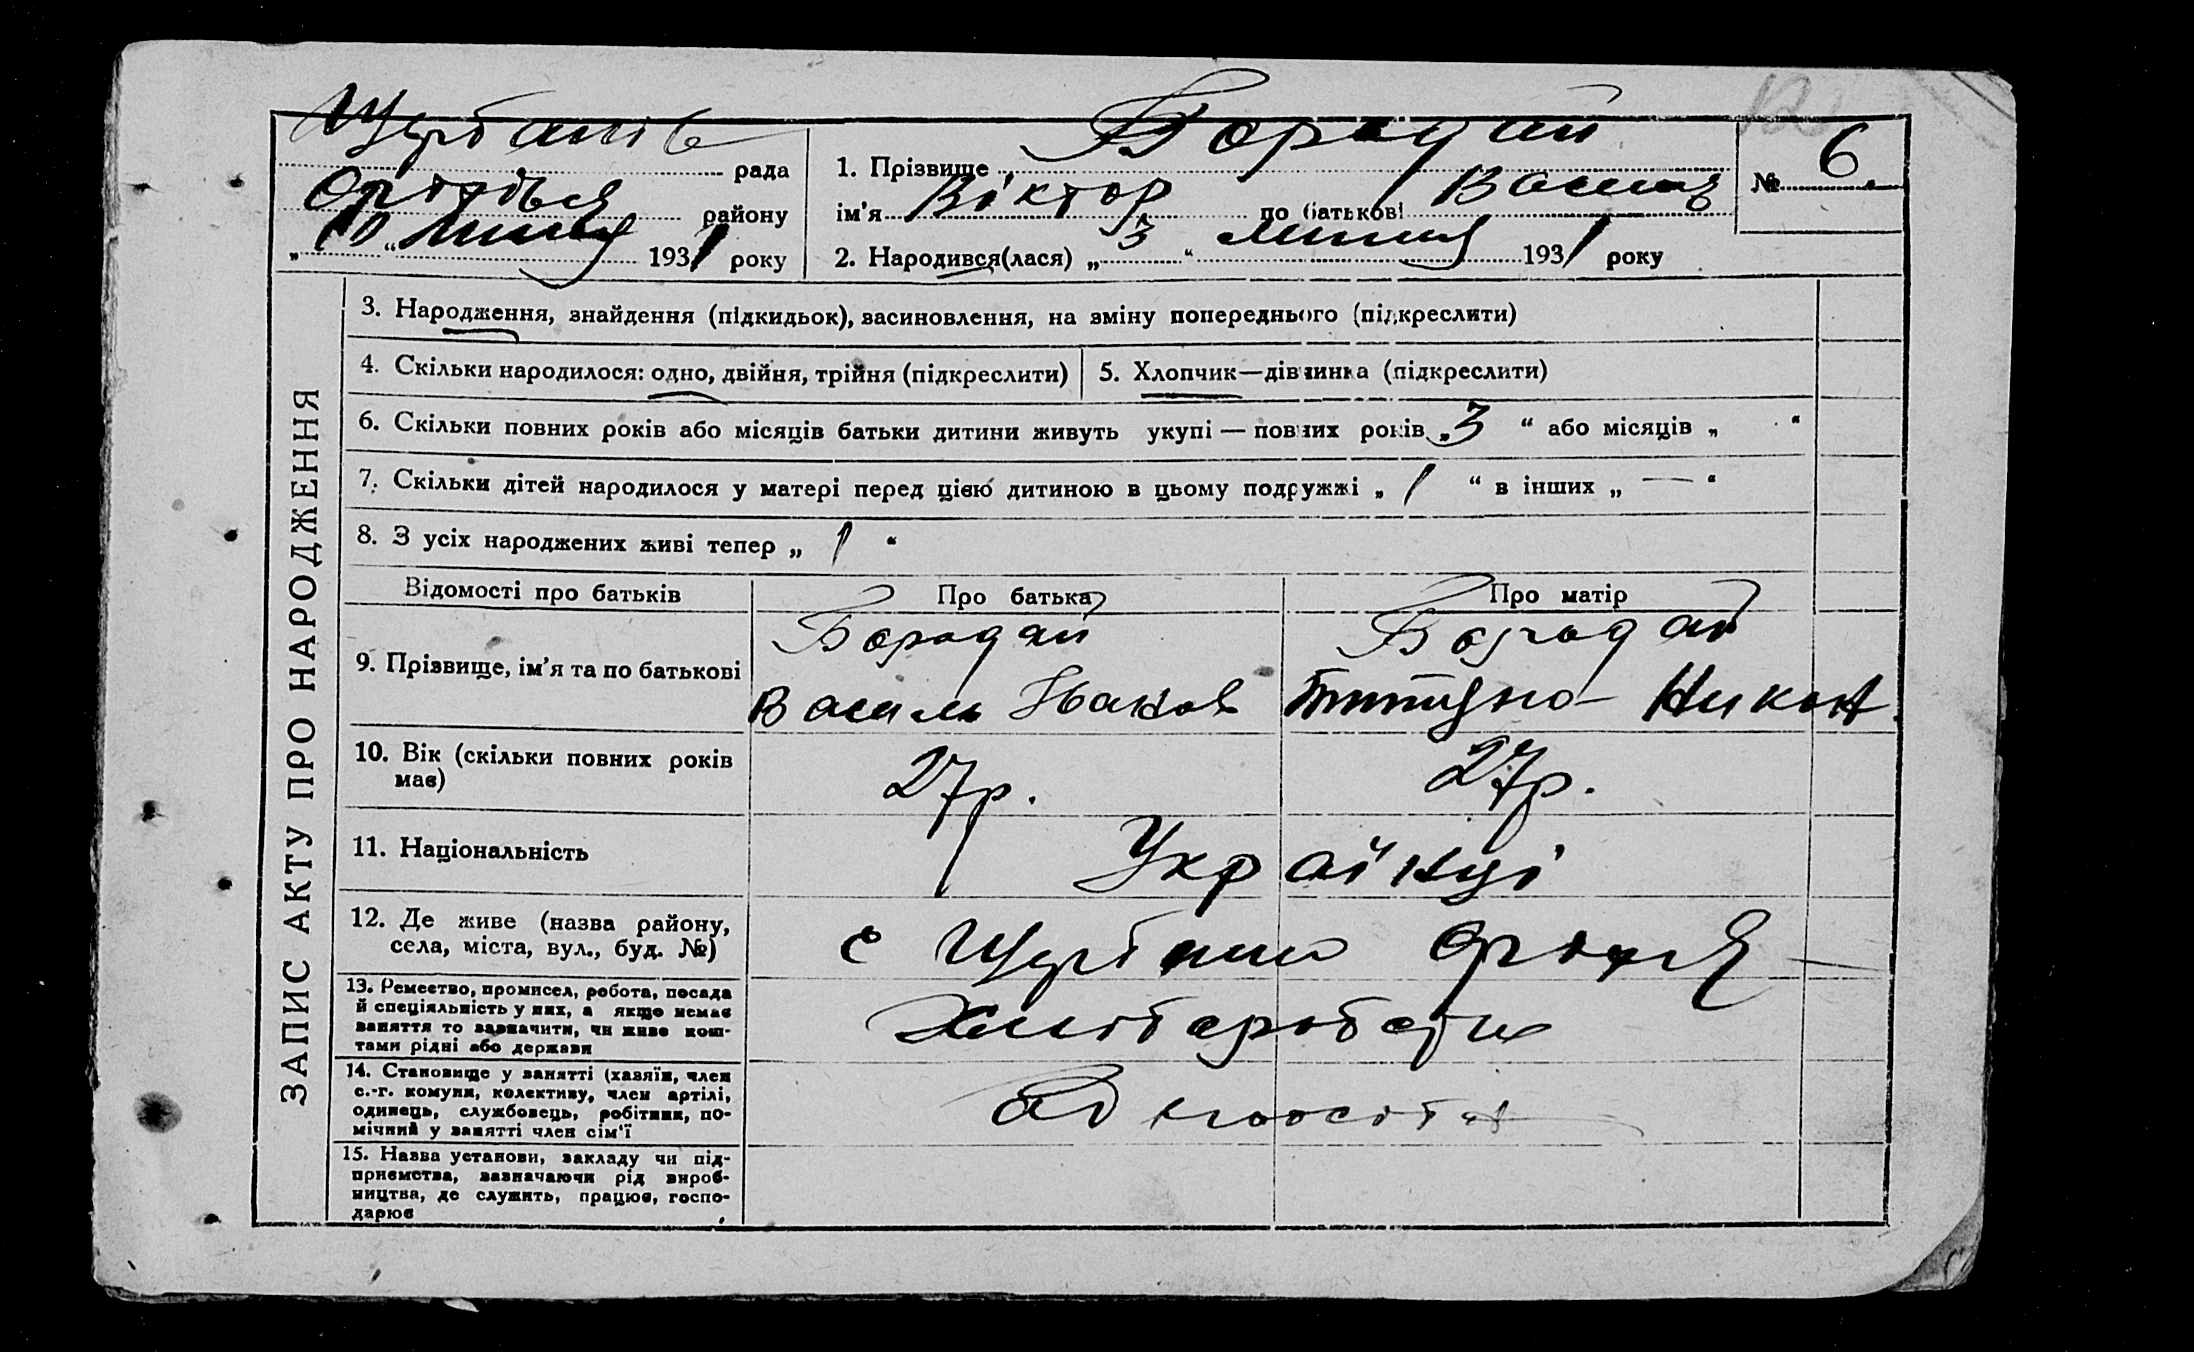 Щербанів рада
району
„10“ липня 1931 року
1. Прізвище Бородай
ім'я Віктор по батькові Васил
2. Народився(лася) „3“ липня 1931 року
№ 6.
ЗАПИС АКТУ ПРО НАРОДЖЕННЯ
3. Народження, знайдення (підкидьок), васиновлення, на зміну попереднього (підкреслити)
4. Скільки народилося: одно, двійня, трійня (підкреслити)
5. Хлопчик—дівчинка (підкреслити)
6. Скільки повних років або місяців батьки дитини живуть укупі — повних років „3“ або місяців „ “
7. Скільки дітей народилося у матері перед цією дитиною в цьому подружжі „1“ в інших „—“
8. З усіх народжених живі тепер „1“
Відомості про батьків Про батька Про матір
9. Прізвище, ім'я та по батькові
Бородай Бородай
Василь Никон
10. Вік (скільки повних років
має)
27р. 27р.
11. Національність Українці
12. Де живе (назва району,
села, міста, вул., буд. №)
с Щербани
13. Ремество, промисел, робота, посада
й спеціяльність у них, а якщо немає
заняття то зазначити, чи живе кош-
тами рідні або держави
Хлібороби
14. Становище у занятті (хазяїн, член
с.-г. комуни, колективу, член артілі,
одинець, службовець, робітник, по-
мічний у занятті член сім'ї
Одноосібн
15. Назва установи, закладу чи під-
приємства, зазначаючи рід вироб-
ництва, де служить, працює, госпо-
дарює